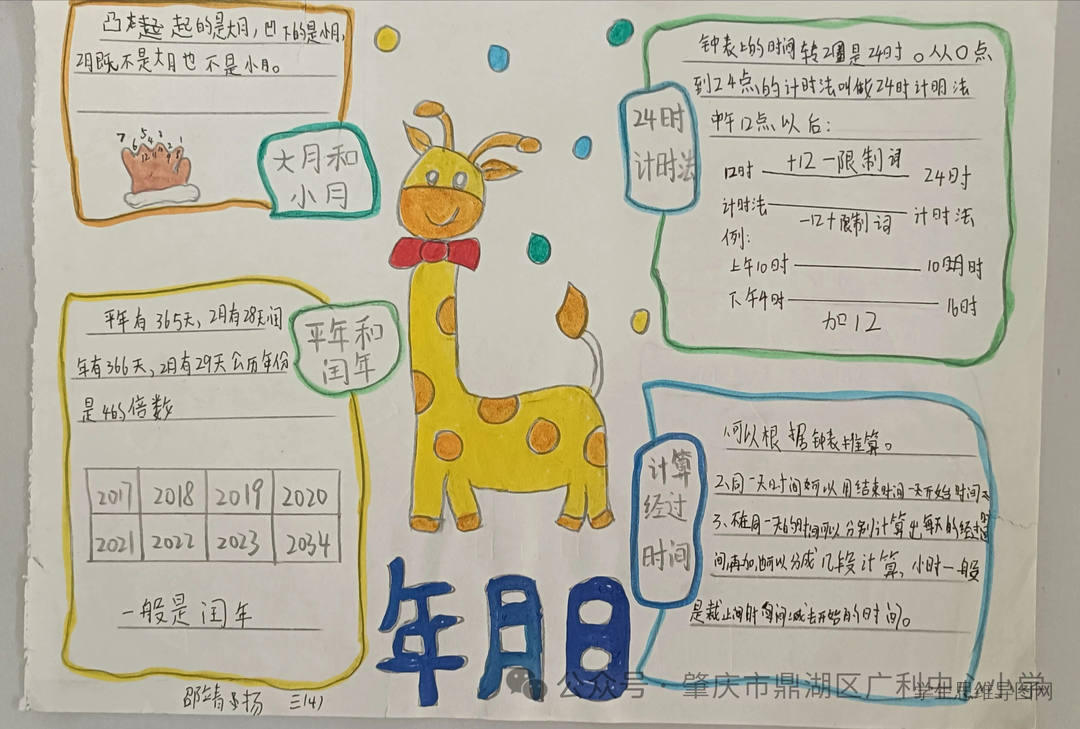 凸 起的是大月，凹下的是小月，
2月既不是大月也不是小月。
7 6 5 4 3 2 1
12 11
大月和
小月
平年和
闰年
平年有365天，2月有28天闰
年有366天，2月有29天公历年份
是4的倍数
2017 2018 2019 2020
2021 2022 2023 2034
一般是闰年
三(4)
年月日
24时
计时法
钟表上的时间转2圈是24时。从0点
到24点的计时法叫做24时计时法
中午12点以后：
12时 +12一限制词 24时
计时法 -12+限制词 计时法
例：
上午10时 10时
下午4时 16时
加12
计算
经过
时间
1.可以根据钟表推算。
2、同一天时间可以用结束时间一天开始时间
3、不在同一天的时间可以分别计算出每天的经过时
间，再加，也可以分成几段计算，小时一般
是截止间时间减去开始的时间。
公众号·肇庆市鼎湖区广利中心小学
学生思维导图网